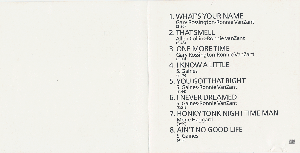 1. WHAT'S YOUR NAME
Gary Rossington-Ronnie VanZant
2. THAT SMELL
Allen Collins-Ronnie VanZant
3. ONE MORE TIME
Gary Rossington-Ronnie VanZant
4. I KNOW A LITTLE
S. Gaines
5. YOU GOT THAT RIGHT
S. Gaines-Ronnie VanZant
6. I NEVER DREAMED
S. Gaines-Ronnie VanZant
7. HONKY TONK NIGHT TIME MAN
Merle Haggard
8. AIN'T NO GOOD LIFE
S. Gaines